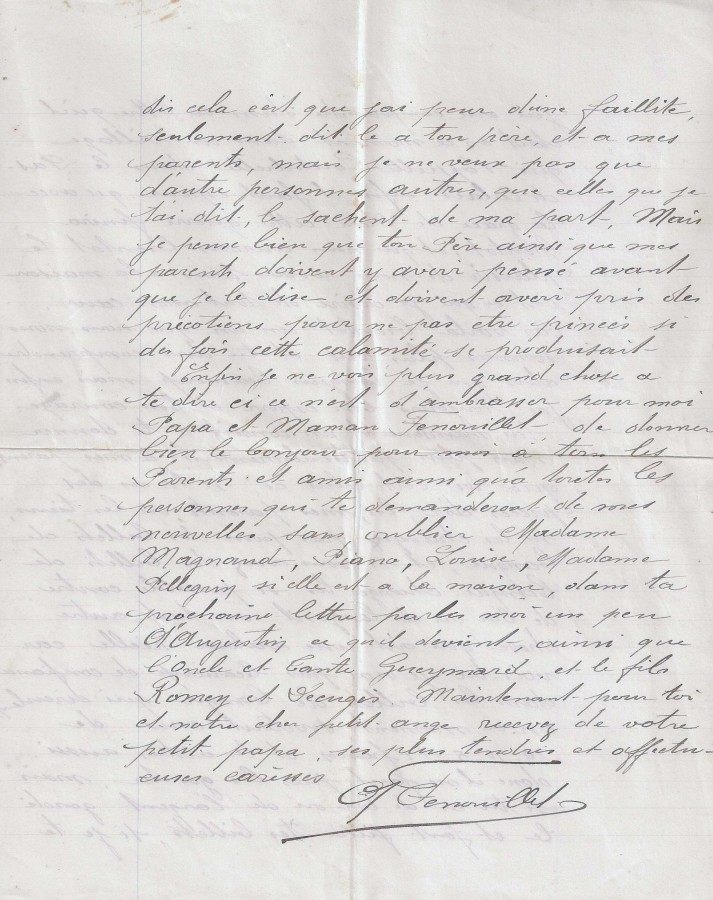 dis cela c'est que j'ai peur d'une faillite,
seulement dit le a ton père, et a mes
parents, mais je ne veux pas que
d'autre personnes autres, que celles que je
t'ai dit, le sachent de ma part, Mais
je pense bien que ton Père ainsi que mes
parents doivent y avoir pensé avant
que je le dise et doivent avoir pris des
précotiens pour ne pas etre princés si
des fois cette calamité se produisait
Enfin je ne vois plus grand chose a
te dire ci ce n'est d'ambrasser pour moi
Papa et Maman Fenouillet de donner
bien le bonjour pour moi à tous les
Parents et amis ainsi qu'a toutes les
personnes qui te demanderont de mes
nouvelles sans oublier Madame
Magnand, Piano, Louise, Madame
Pellegrin si elle est a la maison, dans ta
prochaine lettre parles moi un peu
d'Augustin ce qu'il devient, ainsi que
l'Oncle et Tante Gueymard, et le fils
Romey et Maintenant pour toi
et notre cher petit ange recevez de votre
petit papa, ses plus tendres et affectu-
euses caresses
Fenouillet